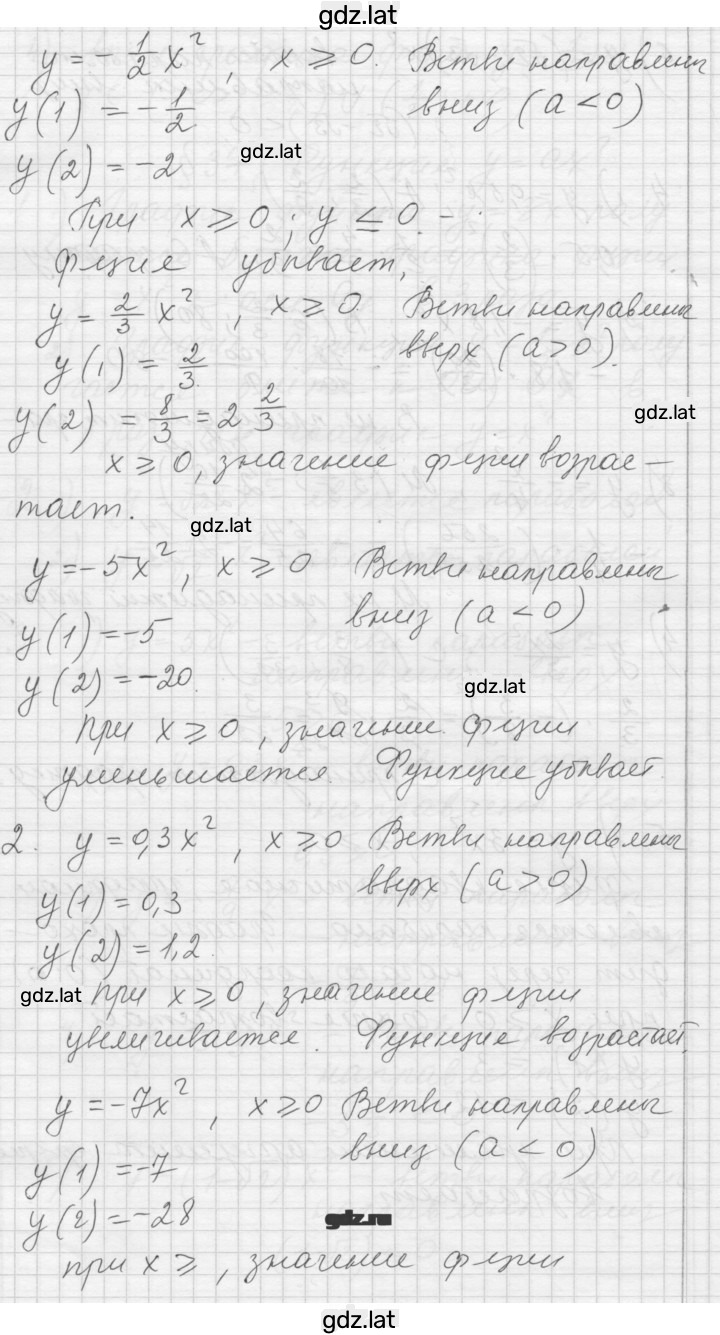 gdz.lat
y = -1/2 x², x ⩾ 0. Ветви направлены
y(1) = -1/2 вниз (a < 0)
gdz.lat
y(2) = -2
При x ⩾ 0; y ≤ 0. -
фция убывает,
y = 2/3 x², x ⩾ 0 Ветви направлены
вверх (a > 0).
y(1) = 2/3.
y(2) = 8/3 = 2 2/3
gdz.lat
x ⩾ 0, значение фции возрас-
тает.
gdz.lat
y = -5x², x ⩾ 0 Ветви направлены
вниз (a < 0)
y(1) = -5
y(2) = -20.
gdz.lat
при x ⩾ 0, значение фции
уменьшается. Функция убывает.
2. y = 0,3x², x ⩾ 0 Ветви направлены
вверх (a > 0)
y(1) = 0,3
y(2) = 1,2.
gdz.lat при x ⩾ 0, значение фции
увеличивается. Функция возрастает.
y = -7x², x ⩾ 0 Ветви направлены
вниз (a < 0)
y(1) = -7
y(2) = -28
gdz.ru
при x ⩾, значение фции
gdz.lat